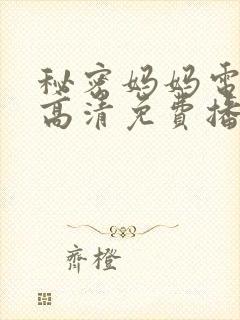 秘密妈妈电
高清免费播
齊橙